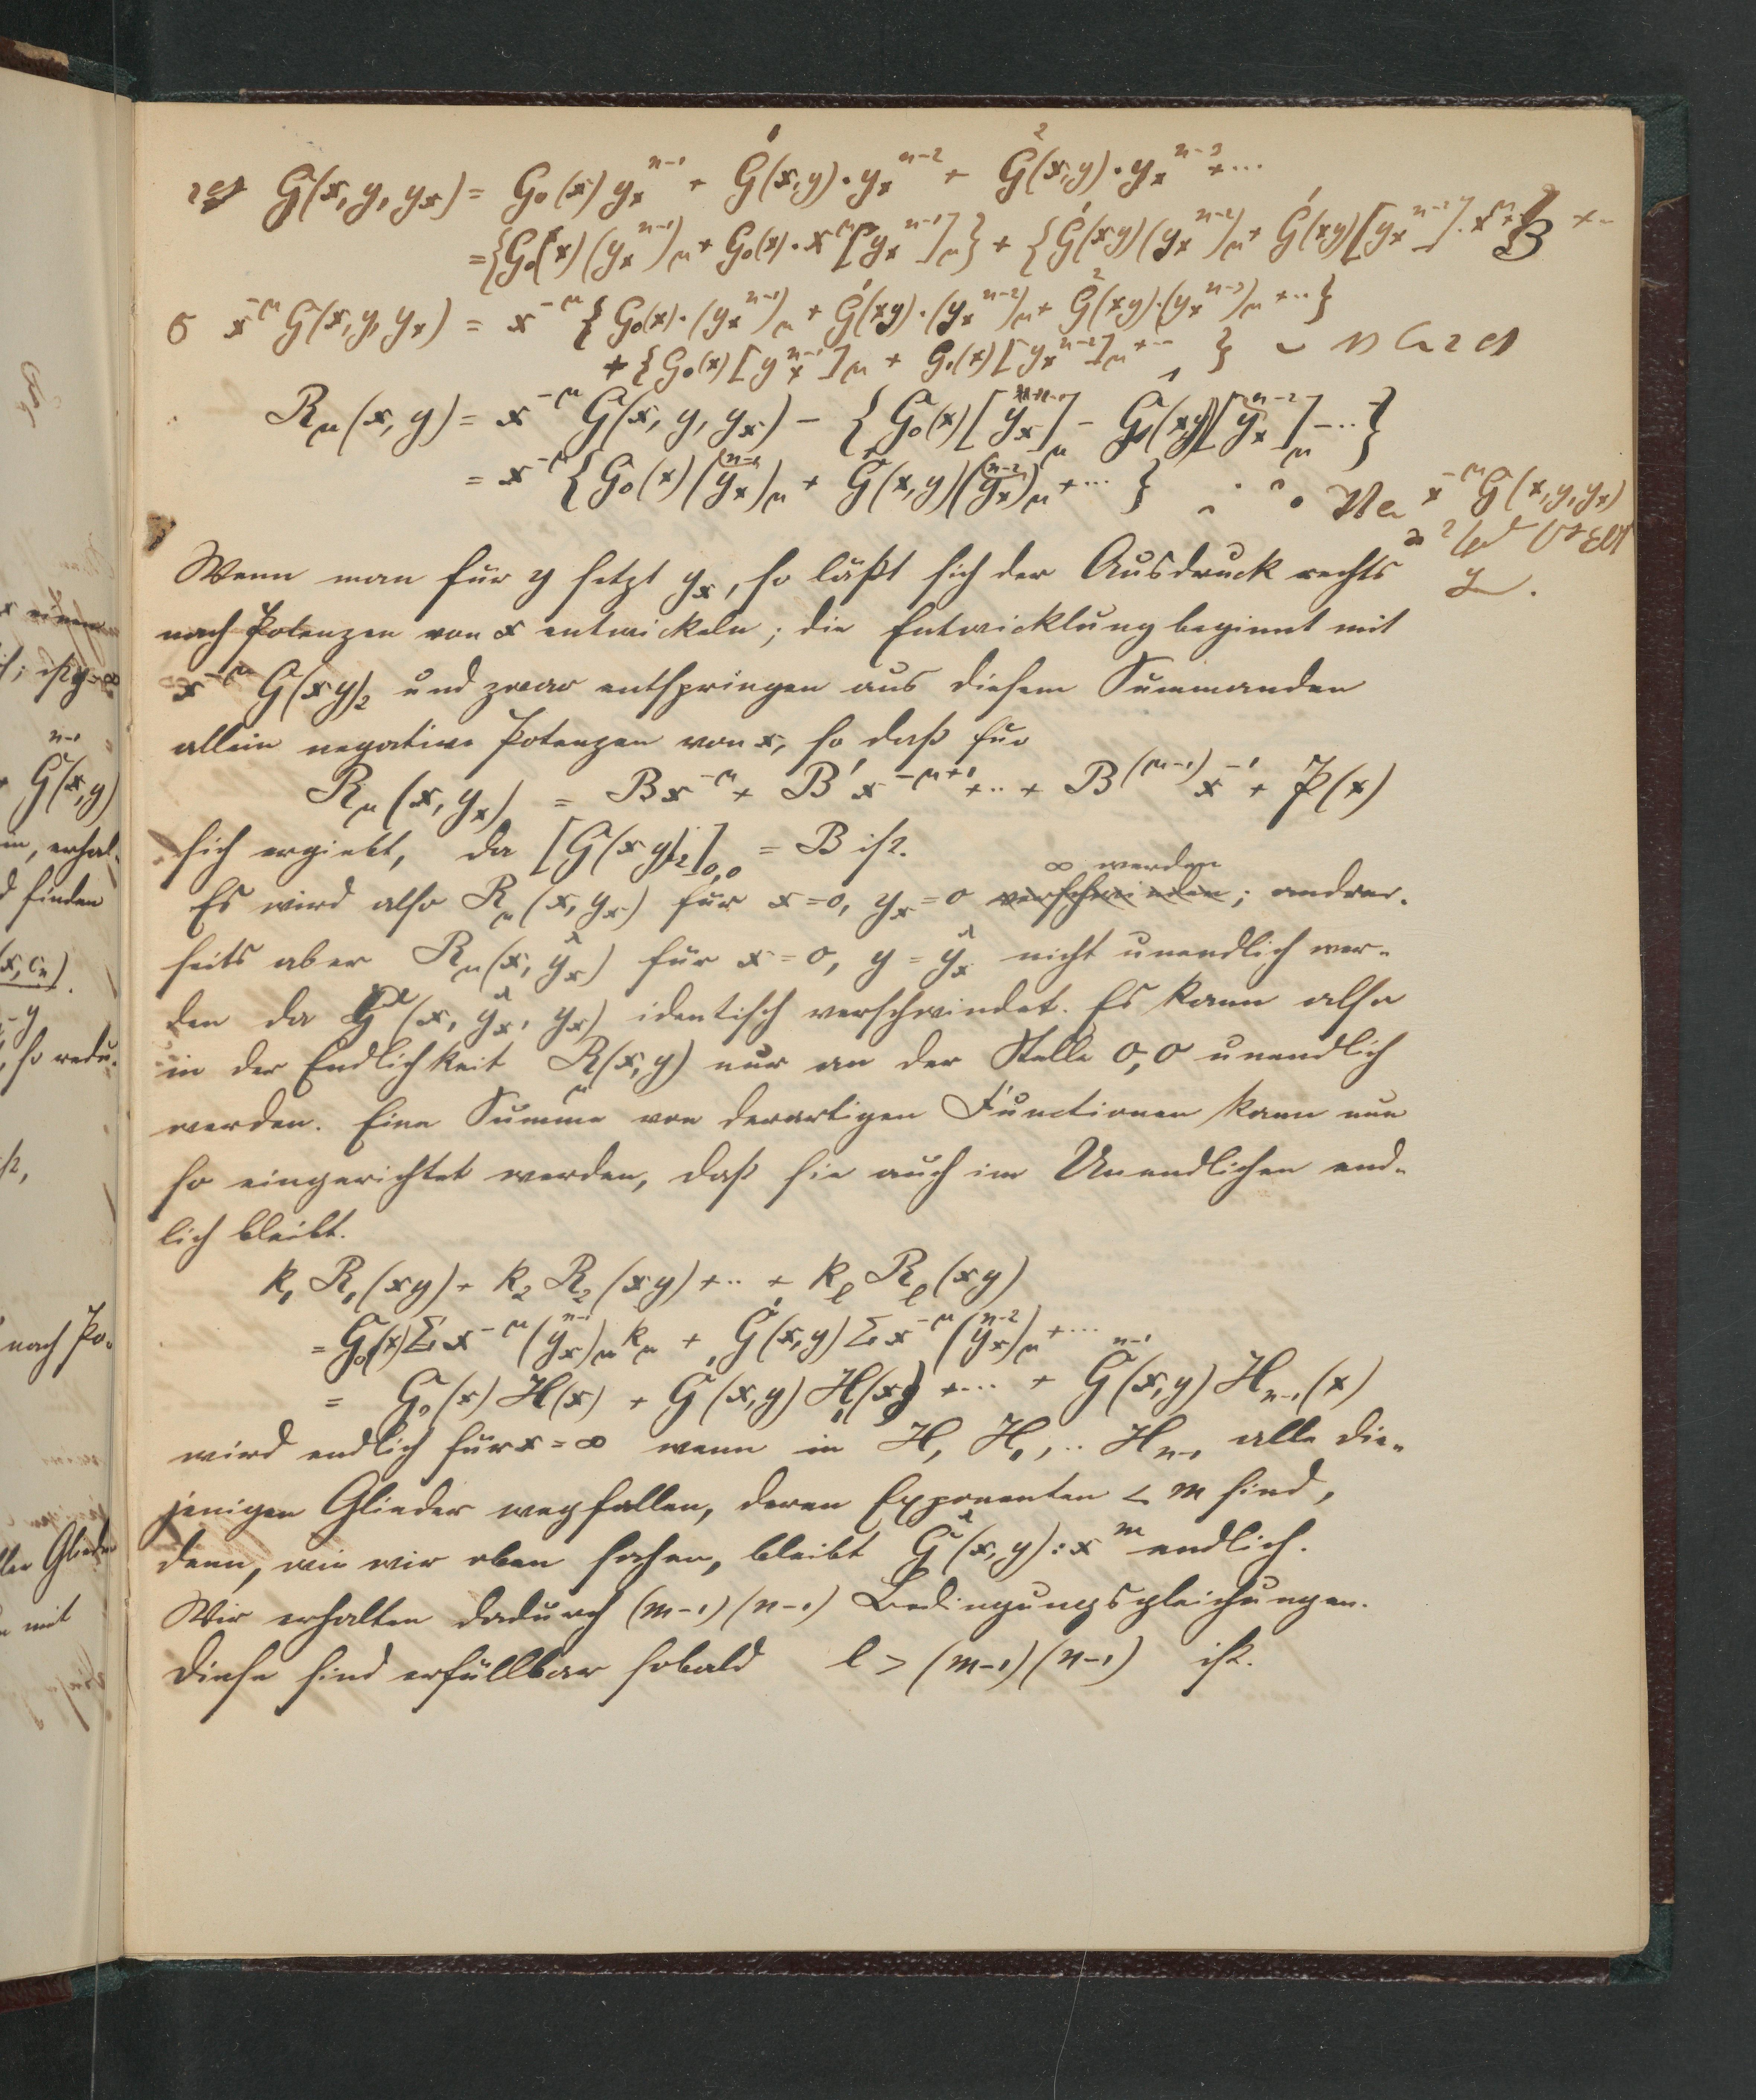 G(x, y, yₓ) = G₀(x) yₓⁿ⁻¹ + G¹(x,y)·yₓⁿ⁻² + G²(x,y)·yₓⁿ⁻³ + ...
= {G₀(x)(yₓⁿ⁻¹)_μ + G₀(x)·x^μ[yₓⁿ⁻¹]_μ} + {G¹(xy)(yₓⁿ⁻²)_μ + G¹(xy)[yₓⁿ⁻²]_μ·x^μ} + ..
x^{-μ} G(x, y, yₓ) = x^{-μ}{G₀(x)·(yₓⁿ⁻¹)_μ + G¹(xy)·(yₓⁿ⁻²)_μ + G²(xy)·(yₓⁿ⁻³)_μ + ..}
+ {G₀(x)[yₓⁿ⁻¹]_μ + G₁(x)[yₓⁿ⁻²]_μ + ... }
R_μ(x, y) = x^{-μ} G(x, y, yₓ) − {G₀(x)[yₓⁿ⁻¹]_μ − G¹(xy)[yₓⁿ⁻²]_μ − ..}
= x^{-μ}{G₀(x)(yₓⁿ⁻¹)_μ + G¹(x,y)(yₓⁿ⁻²)_μ + ... }
x^{-μ} G(x, y, yₓ)
Wenn man für y setzt yₓ, so läßt sich der Ausdruck rechts
nach Potenzen von x entwickeln; die Entwicklung beginnt mit
x^{-μ} G(xy)₂ und zwar entspringen aus diesem Summanden
allein negative Potenzen von x, so daß für
R_μ(x, yₓ) = Bx^{-μ} + B′x^{-μ+1} + .. + B^{(μ-1)}x^{-1} + P(x)
sich ergiebt, da [G(xy)₂]₀,₀ = B ist.
∞ werden
Es wird also R_μ(x, yₓ) für x=0, yₓ=0 verschwinden; andrer-
seits aber R_μ(x, yₓ^λ) für x=0, y = yₓ^λ nicht unendlich wer-
den da G(x, yₓ^λ, yₓ) identisch verschwindet. Es kann also
in der Endlichkeit R_μ(x, y) nur an der Stelle 0,0 unendlich
werden. Eine Summe von derartigen Functionen kann nun
so eingerichtet werden, daß sie auch im Unendlichen end-
lich bleibt.
k₁R₁(xy) + k₂R₂(xy) + .. + k_ℓR_ℓ(xy)
= G₀(x)Σx^{-μ}(yₓⁿ⁻¹)_μ k_μ + G¹(x,y)Σx^{-μ}(yₓⁿ⁻²)_μ + ...
= G₀(x)H(x) + G¹(x,y)H₁(x) + ... + Gⁿ⁻¹(x,y)Hₙ₋₁(x)
wird endlich für x=∞ wenn in H, H₁, .. Hₙ₋₁ alle die-
jenigen Glieder wegfallen, deren Exponenten < m sind,
denn, wie wir oben sahen, bleibt G^λ(x,y):x^m endlich.
Wir erhalten dadurch (m−1)(n−1) Bedingungsgleichungen.
Diese sind erfüllbar sobald ℓ > (m−1)(n−1) ist.